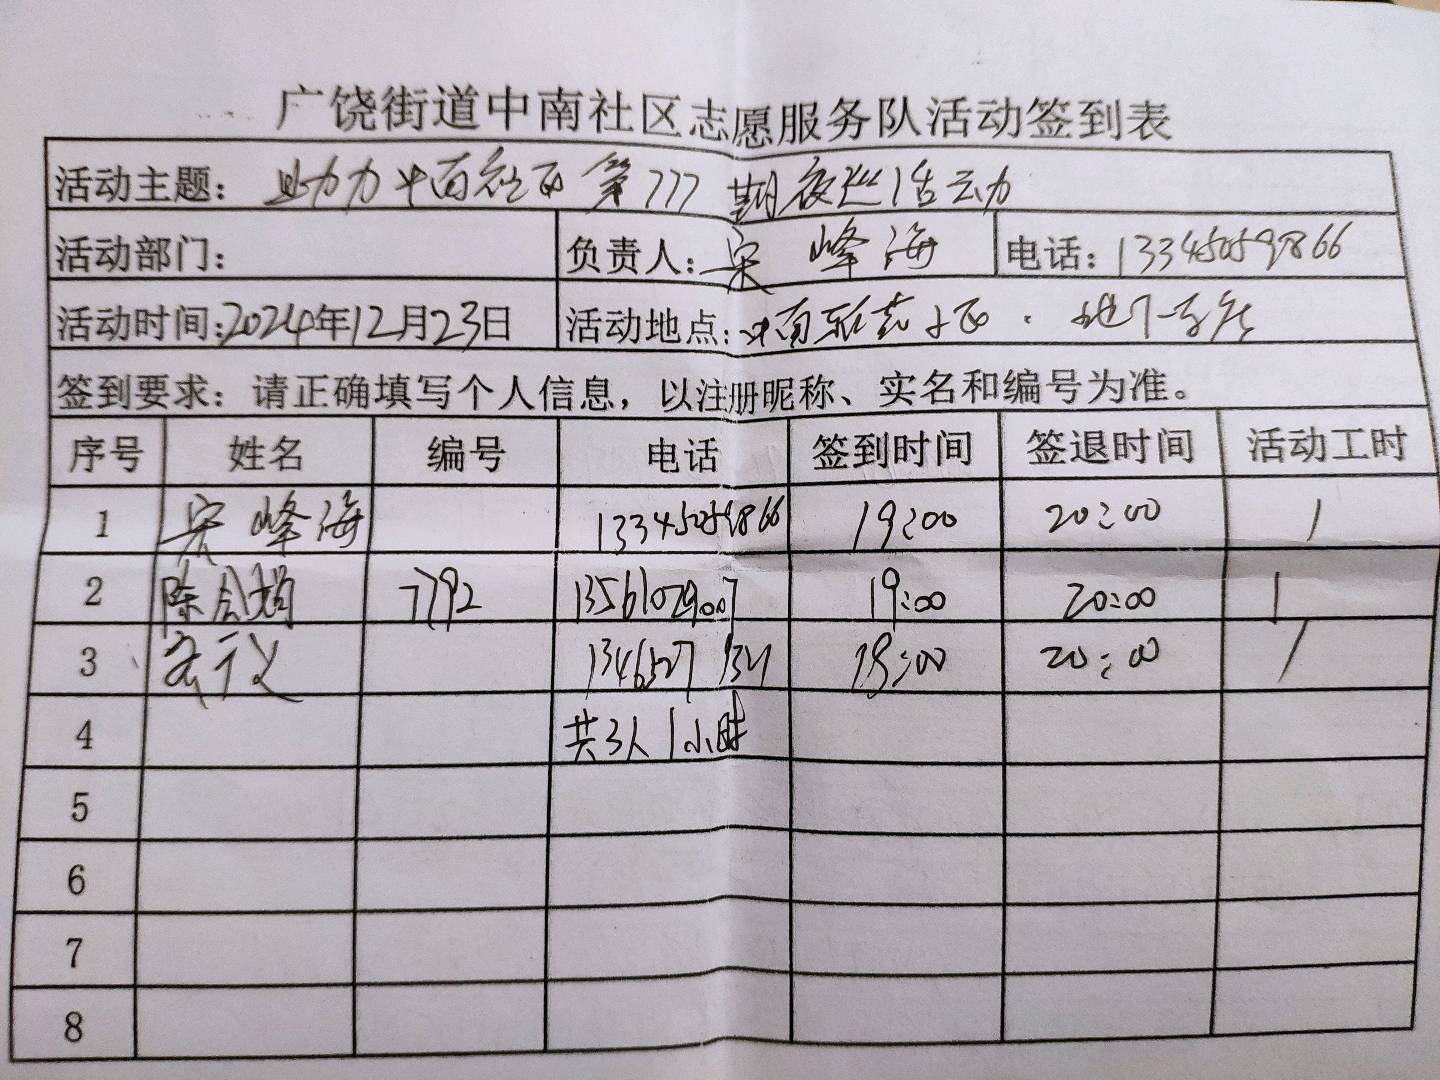 广饶街道中南社区志愿服务队活动签到表
活动主题: 助力中南社区第777期夜巡活动
活动部门: 负责人: 宋峰海 电话: 13345059866
活动时间: 2024年12月23日 活动地点: 中南
签到要求: 请正确填写个人信息，以注册昵称、实名和编号为准。
序号 姓名 编号 电话 签到时间 签退时间 活动工时
1 宋峰海 13345059866 19:00 20:00 1
2 陈 7792 13561079007 19:00 20:00 1
3 19:00 20:00 1
4 共3人1小时
5
6
7
8